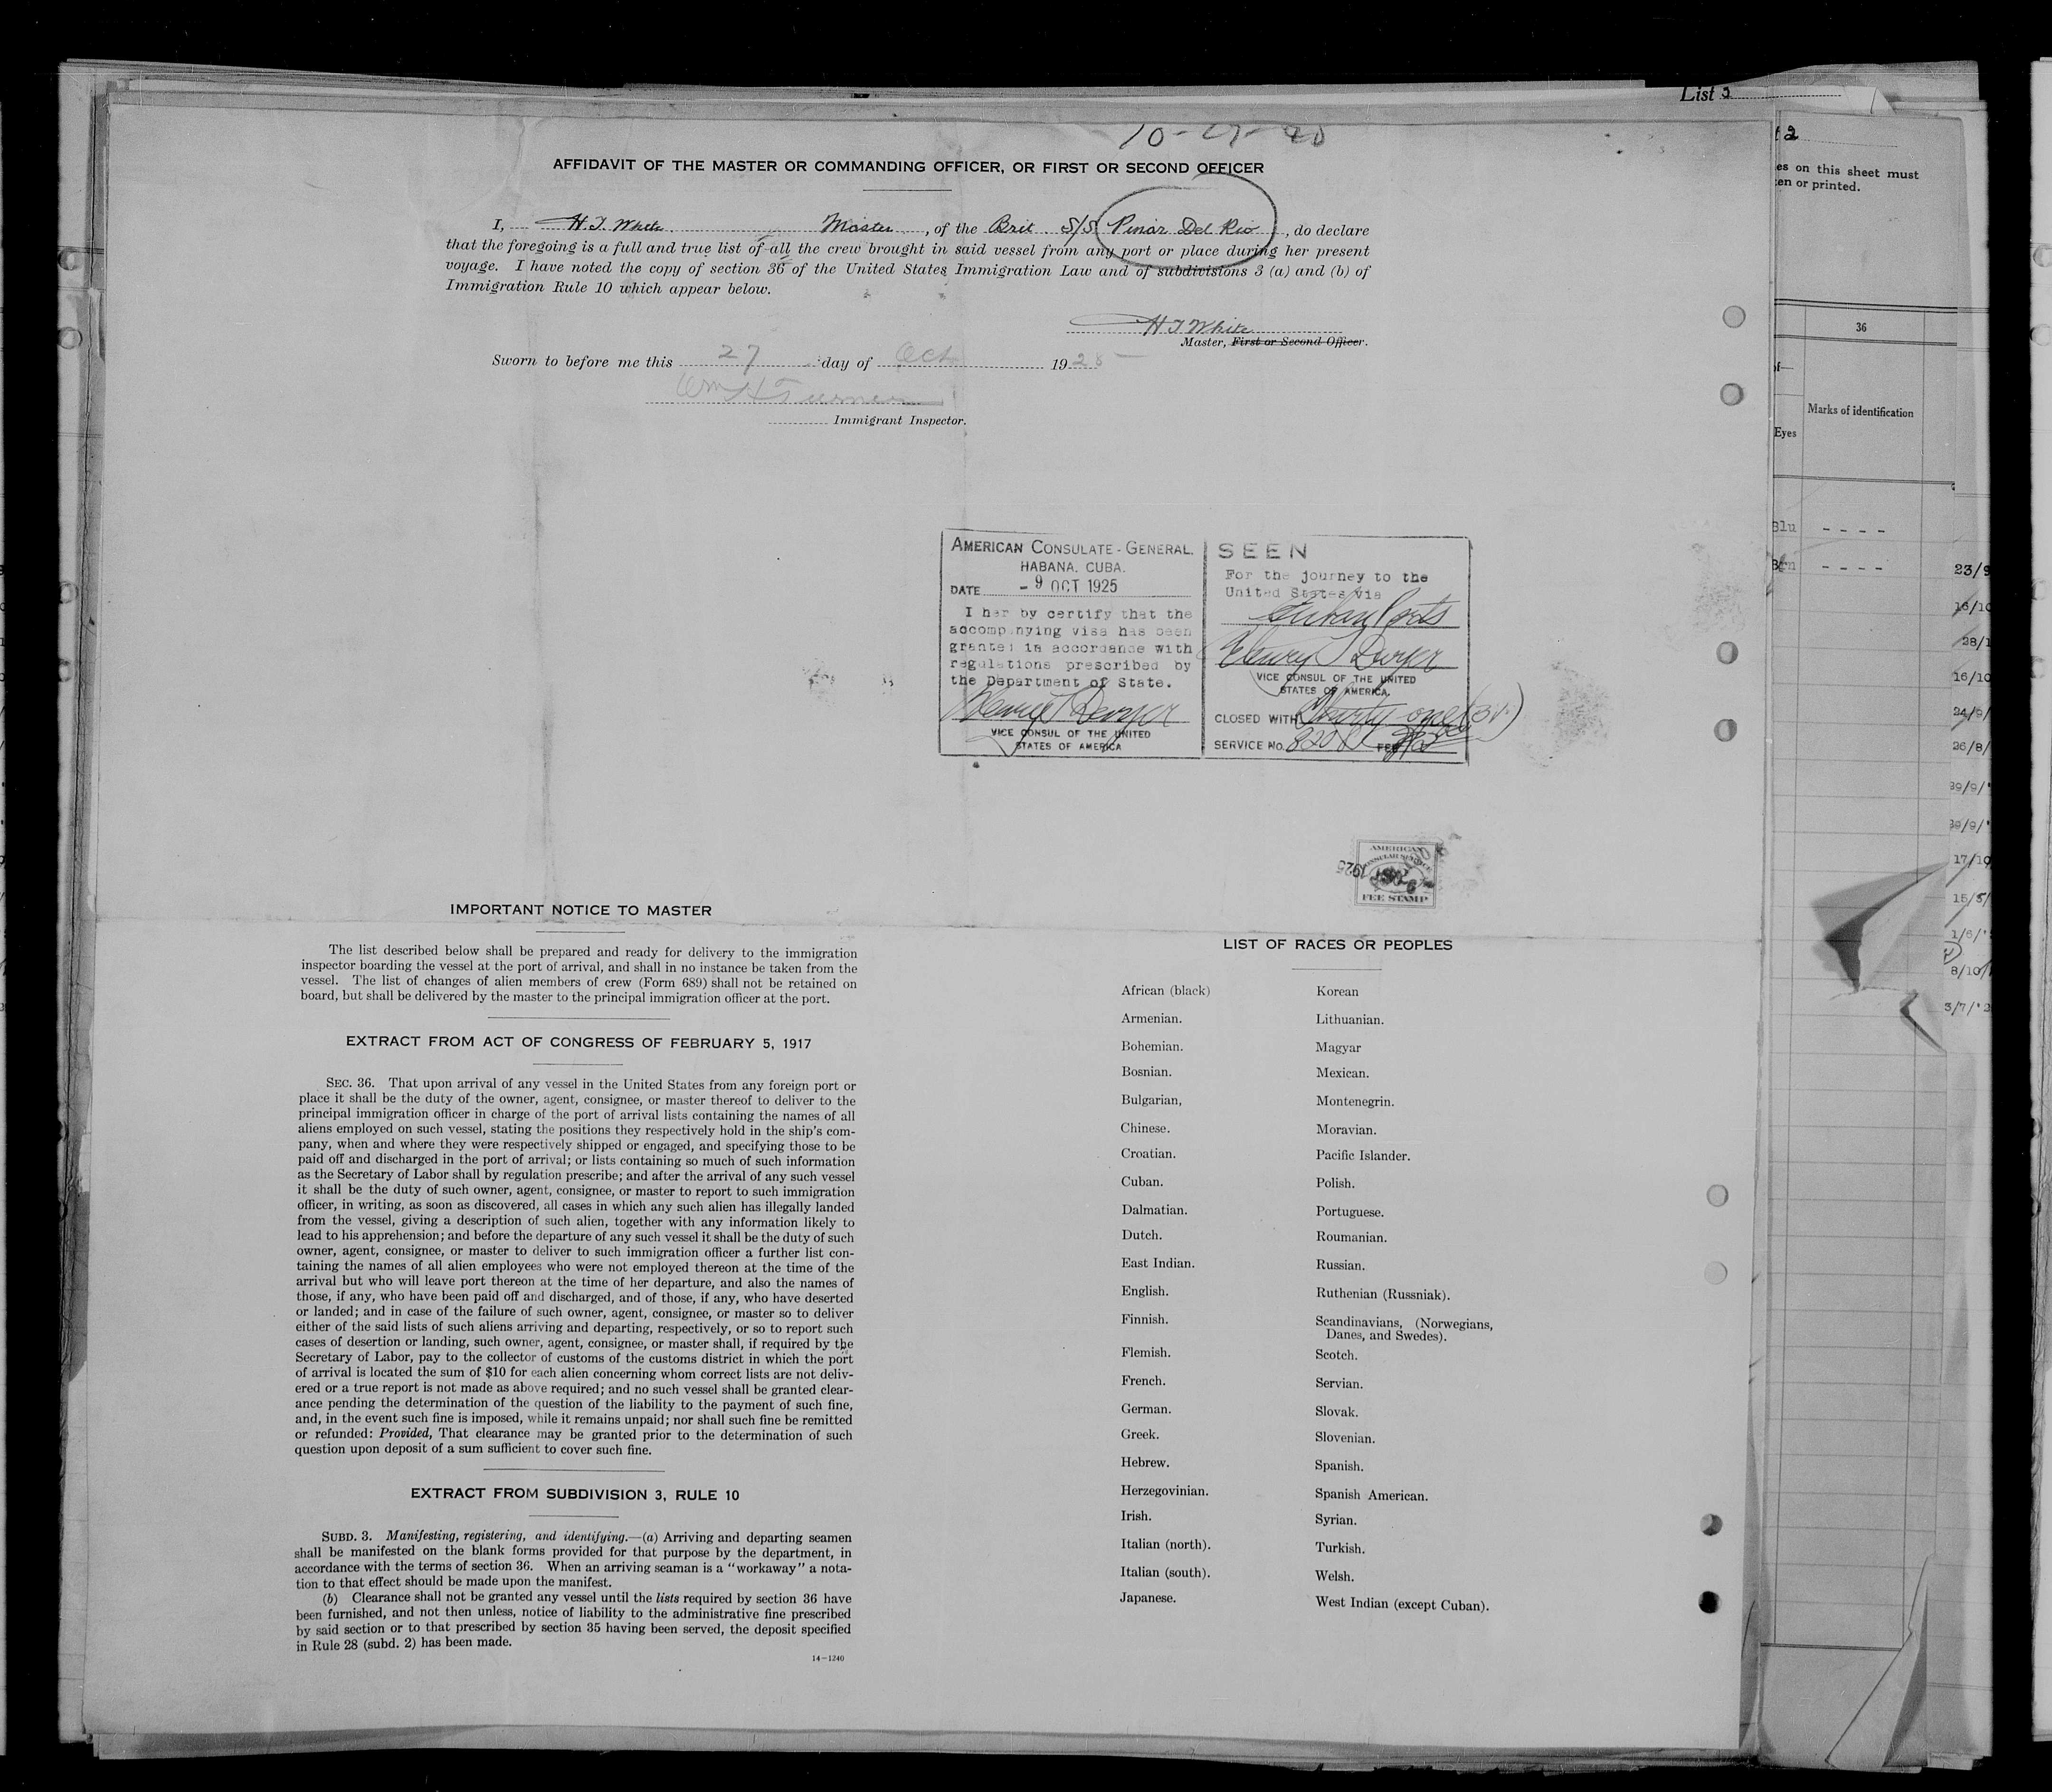 List 3
10-27-
AFFIDAVIT OF THE MASTER OR COMMANDING OFFICER, OR FIRST OR SECOND OFFICER
I, H. J. White Master, of the Brit S/S Pinar Del Rio, do declare
that the foregoing is a full and true list of all the crew brought in said vessel from any port or place during her present
voyage. I have noted the copy of section 36 of the United States Immigration Law and of subdivisions 3 (a) and (b) of
Immigration Rule 10 which appear below.
H J White
Master, First or Second Officer.
Sworn to before me this 27 day of Oct 192
Wm H Turner
Immigrant Inspector.
AMERICAN CONSULATE-GENERAL.
HABANA. CUBA.
DATE - 9 OCT 1925
I her by certify that the
accomp nying visa has been
granted in accordance with
regulations prescribed by
the Department of State.
Henry T Dwyer
VICE CONSUL OF THE UNITED
STATES OF AMERICA
SEEN
For the journey to the
United States via
Cuban Ports
Henry T Dwyer
VICE CONSUL OF THE UNITED
STATES OF AMERICA.
CLOSED WITH Thirty-one (31)
SERVICE No. FEE
AMERICAN
CONSULAR SERVICE
FEE STAMP
1925
IMPORTANT NOTICE TO MASTER
The list described below shall be prepared and ready for delivery to the immigration
inspector boarding the vessel at the port of arrival, and shall in no instance be taken from the
vessel. The list of changes of alien members of crew (Form 689) shall not be retained on
board, but shall be delivered by the master to the principal immigration officer at the port.
EXTRACT FROM ACT OF CONGRESS OF FEBRUARY 5, 1917
SEC. 36. That upon arrival of any vessel in the United States from any foreign port or
place it shall be the duty of the owner, agent, consignee, or master thereof to deliver to the
principal immigration officer in charge of the port of arrival lists containing the names of all
aliens employed on such vessel, stating the positions they respectively hold in the ship's com-
pany, when and where they were respectively shipped or engaged, and specifying those to be
paid off and discharged in the port of arrival; or lists containing so much of such information
as the Secretary of Labor shall by regulation prescribe; and after the arrival of any such vessel
it shall be the duty of such owner, agent, consignee, or master to report to such immigration
officer, in writing, as soon as discovered, all cases in which any such alien has illegally landed
from the vessel, giving a description of such alien, together with any information likely to
lead to his apprehension; and before the departure of any such vessel it shall be the duty of such
owner, agent, consignee, or master to deliver to such immigration officer a further list con-
taining the names of all alien employees who were not employed thereon at the time of the
arrival but who will leave port thereon at the time of her departure, and also the names of
those, if any, who have been paid off and discharged, and of those, if any, who have deserted
or landed; and in case of the failure of such owner, agent, consignee, or master so to deliver
either of the said lists of such aliens arriving and departing, respectively, or so to report such
cases of desertion or landing, such owner, agent, consignee, or master shall, if required by the
Secretary of Labor, pay to the collector of customs of the customs district in which the port
of arrival is located the sum of $10 for each alien concerning whom correct lists are not deliv-
ered or a true report is not made as above required; and no such vessel shall be granted clear-
ance pending the determination of the question of the liability to the payment of such fine,
and, in the event such fine is imposed, while it remains unpaid; nor shall such fine be remitted
or refunded: Provided, That clearance may be granted prior to the determination of such
question upon deposit of a sum sufficient to cover such fine.
EXTRACT FROM SUBDIVISION 3, RULE 10
SUBD. 3. Manifesting, registering, and identifying.—(a) Arriving and departing seamen
shall be manifested on the blank forms provided for that purpose by the department, in
accordance with the terms of section 36. When an arriving seaman is a "workaway" a nota-
tion to that effect should be made upon the manifest.
(b) Clearance shall not be granted any vessel until the lists required by section 36 have
been furnished, and not then unless, notice of liability to the administrative fine prescribed
by said section or to that prescribed by section 35 having been served, the deposit specified
in Rule 28 (subd. 2) has been made.
14-1240
LIST OF RACES OR PEOPLES
African (black) Korean
Armenian. Lithuanian.
Bohemian. Magyar
Bosnian. Mexican.
Bulgarian, Montenegrin.
Chinese. Moravian.
Croatian. Pacific Islander.
Cuban. Polish.
Dalmatian. Portuguese.
Dutch. Roumanian.
East Indian. Russian.
English. Ruthenian (Russniak).
Finnish. Scandinavians, (Norwegians,
Danes, and Swedes).
Flemish. Scotch.
French. Servian.
German. Slovak.
Greek. Slovenian.
Hebrew. Spanish.
Herzegovinian. Spanish American.
Irish. Syrian.
Italian (north). Turkish.
Italian (south). Welsh.
Japanese. West Indian (except Cuban).
2
es on this sheet must
en or printed.
36
Marks of identification
Eyes
Blu - - - -
Brn - - - -
23/9
16/10
28/1
16/10
24/9/
26/8/
29/9/'
17/10
15/5/
1/6/'
8/10/
3/7/'2